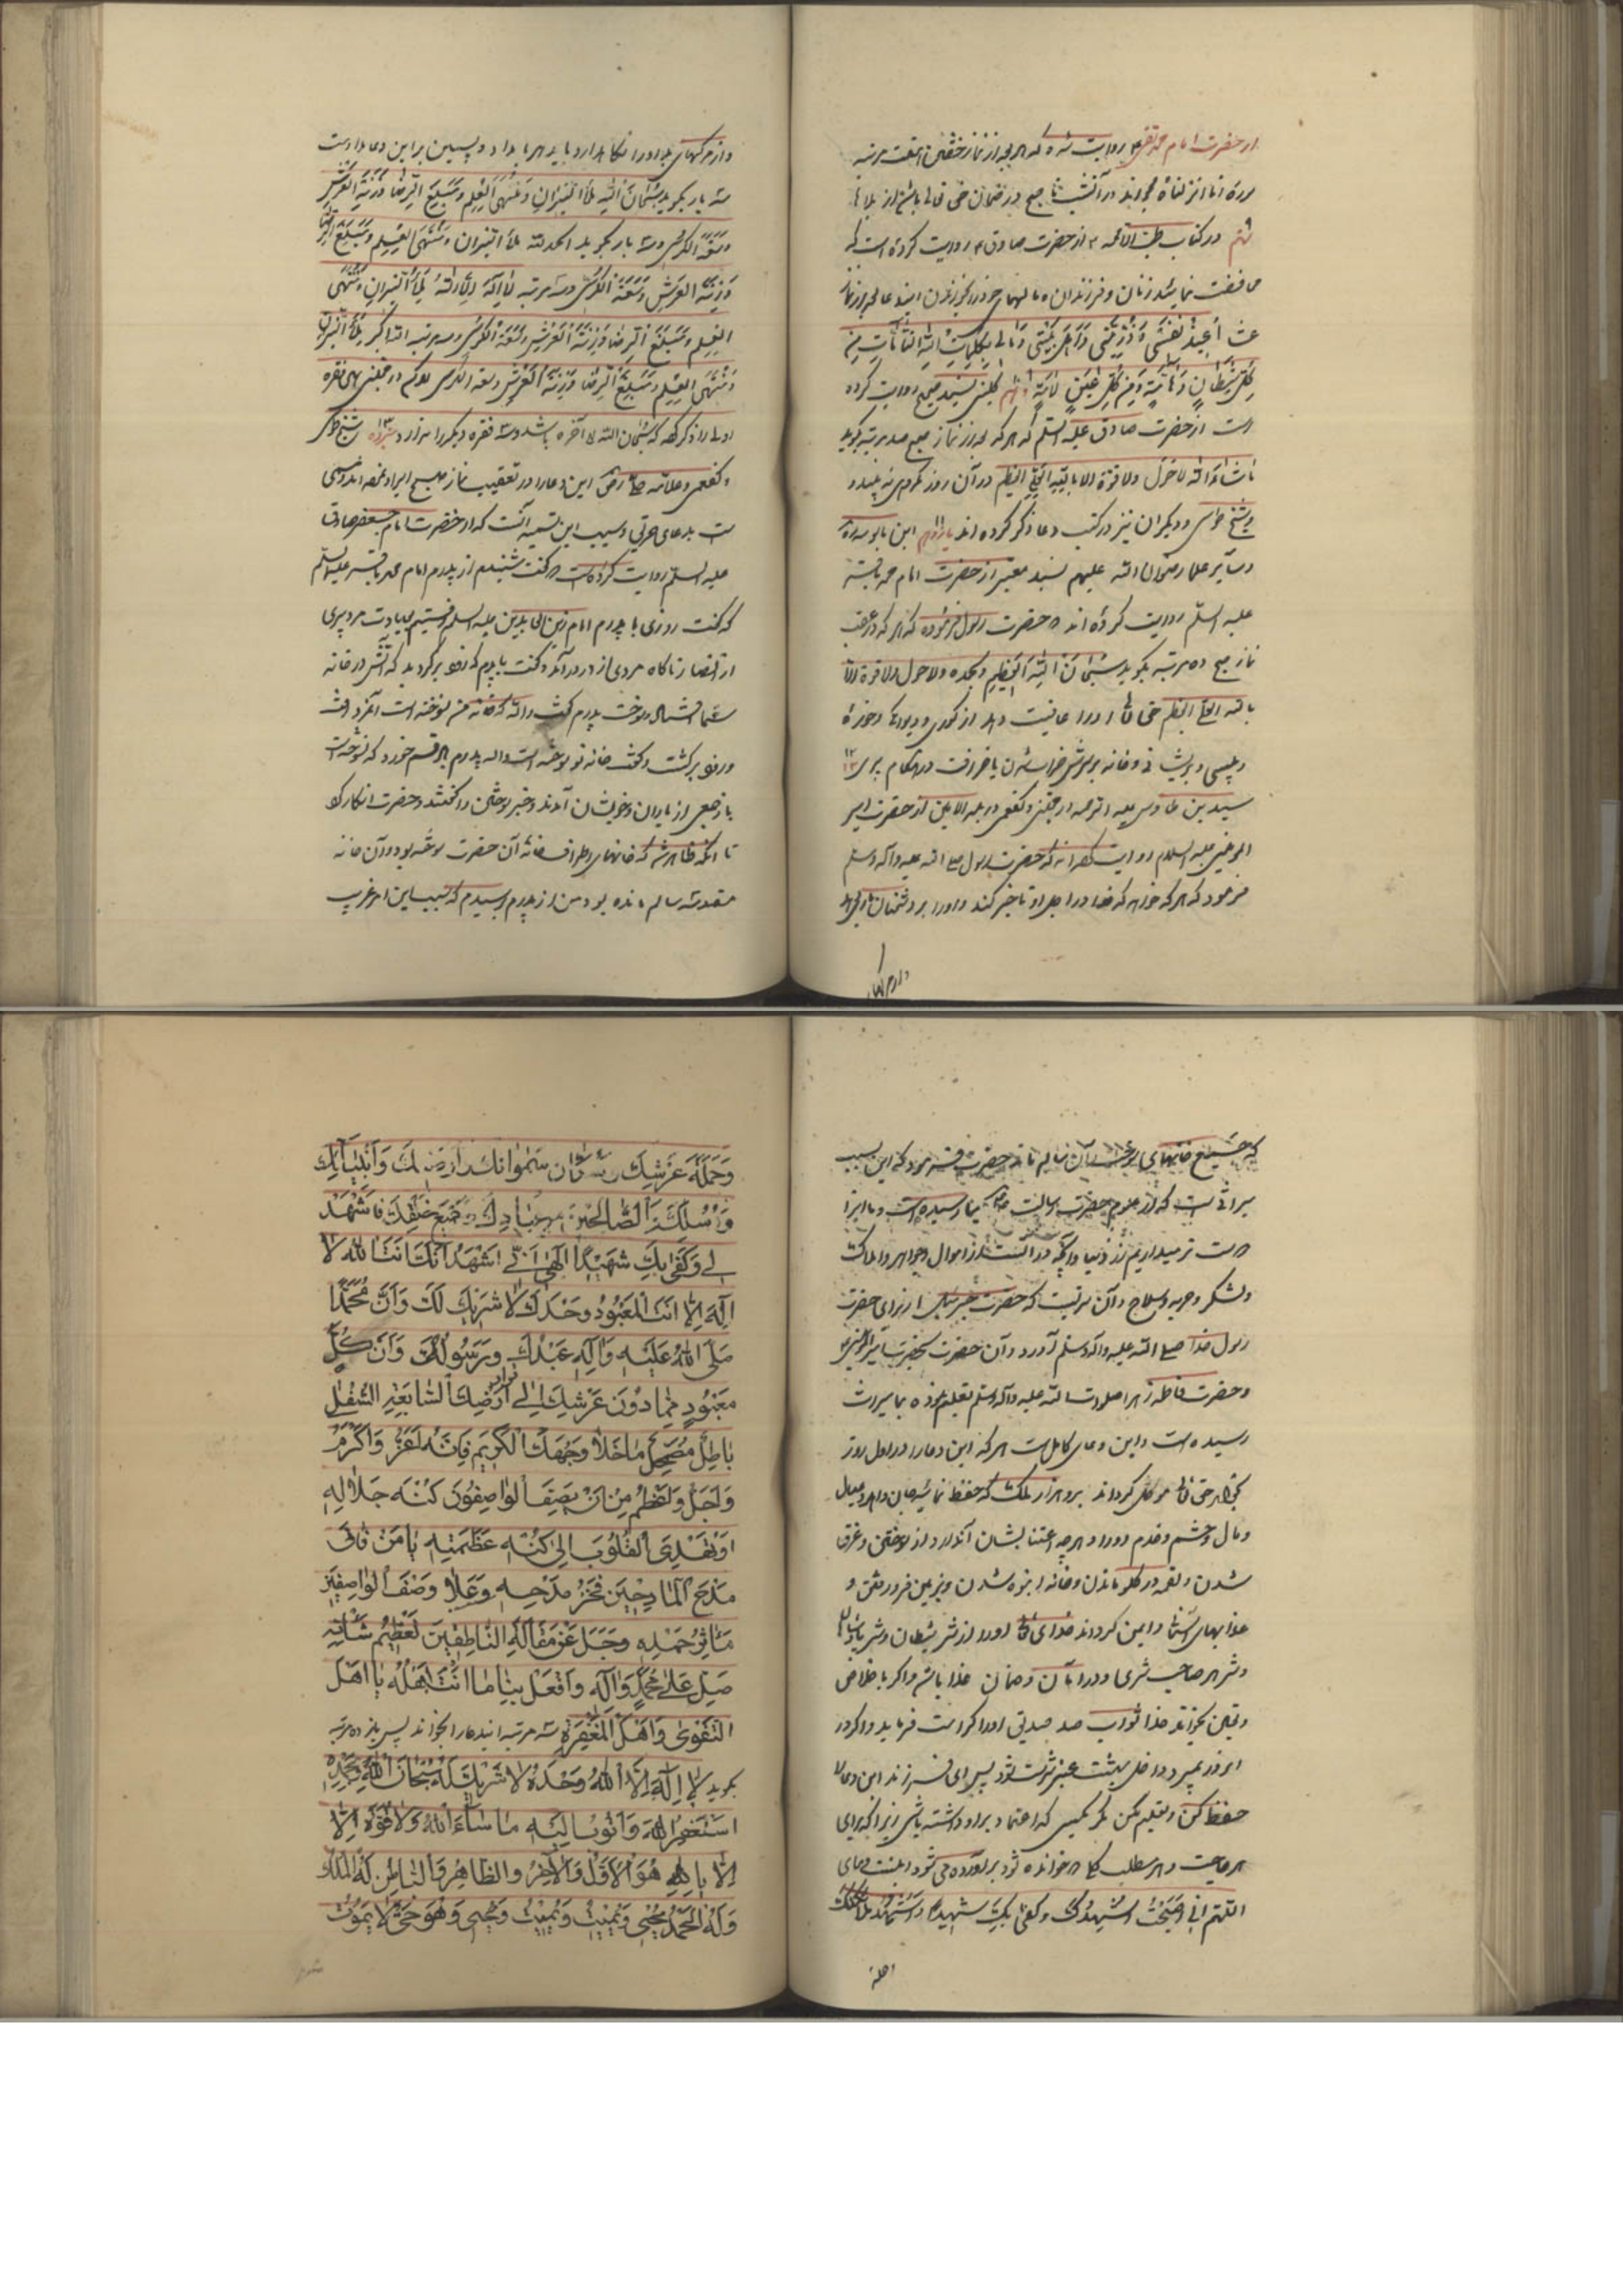 از حضرت امام محمد تقی ع روایت شده که هر که بعد از نماز خفتن هفت مرتبه
سوره انا انزلناه بخواند در آنشب تا صبح در ضمان حق تعالی باشد از بلاها
نهم در کتاب طب الائمه ع از حضرت صادق ع روایت کرده است که
محافظت نمائید زنان و فرزندان و مالهای خود را بخواندن این دعا بعد از نماز
عشا أعيذ نفسي وذريتي وأهل بيتي ومالي بكلمات الله التامات من
كل شيطان وهامة ومن كل عين لامة دهم کلینی بسند صحیح روایت کرده
است از حضرت صادق علیه السلم که هر که بعد از نماز صبح صد مرتبه بگوید
ما شاء الله لا حول ولا قوة الا بالله العلي العظيم در آن روز مکروهی نه بیند و
شیخ طوسی و دیگران نیز در کتب دعا ذکر کرده اند یازدهم ابن بابویه
و سایر علما رضوان الله علیهم بسند معتبر از حضرت امام محمد باقر
علیه السلم روایت کرده اند که حضرت رسول فرموده که هر که در عقب
نماز صبح ده مرتبه بگوید سبحان الله العظيم وبحمده ولا حول ولا قوة الا
بالله العلي العظيم حق تعالی او را عافیت دهد از کوری و دیوانگی و خوره
و پیسی و پریشانی و خانه بر سرش خراب شدن یا خرافت در هنگام پیری ۱۲
سید بن طاوس علیه الرحمه در مجتنی و کفعمی در بلد الامین از حضرت امیر
المومنین علیه السلام روایت کرده اند که حضرت رسول صلی الله علیه وآله وسلم
فرمود که هر که خواهد که خدا در اجل او تاخیر کند و او را بر دشمنان یاری دهد
و از مرگهای بد او را نگاه دارد باید هر بامداد و پسین بر این دعا مداومت
سه بار بگوید سبحان الله ملأ الميزان ومنتهى العلم ومبلغ الرضا وزنة العرش
وسعة الكرسي و سه بار بگوید الحمد لله ملأ الميزان ومنتهى العلم ومبلغ الرضا
وزنة العرش وسعة الكرسي و سه مرتبه لا إله إلا الله ملأ الميزان ومنتهى
العلم ومبلغ الرضا وزنة العرش وسعة الكرسي و سه مرتبه الله اكبر ملأ الميزان
ومنتهى العلم ومبلغ الرضا وزنة العرش وسعة الكرسي در مجتنی همین فقره
اول را ذکر کرده که سبحان الله تا آخره باشد و سه فقره دیگر را ندارد ۱۳ شیخ طوسی
و کفعمی و علامه حلی این دعا را در تعقیب نماز صبح ایراد نموده اند و مسمی
است بدعای حریق و سبب این تسمیه آنست که از حضرت امام جعفر صادق
علیه السلم روایت کرده است که گفت شنیدم از پدرم امام محمد باقر علیه السلم
که گفت روزی با پدرم امام زین العابدین علیه السلم رفتیم بعیادت مرد پیری
از انصار ناگاه مردی از در درآمد و گفت بپدرم که زود برگردید که آتش در خانه
شما افتاد و سوخت پدرم گفت والله که خانه من نسوخته است آنمرد رفت
و زود برگشت و گفت خانه تو سوخته است والله پدرم باز قسم خورد که نسوخته است
باز جمعی از یاران و خویشان آمدند و خبر سوختن را گفتند و حضرت انکار کرد
تا آنکه ظاهر شد که خانهای اطراف خانه آن حضرت سوخته بود و آن خانه
مقدسه سالم مانده بود من از پدرم پرسیدم که سبب این امر غریب
که جمیع خانهای سوخت و آن سالم ماند حضرت فرمود که این بسبب
میراثی است که از علوم حضرت رسالت ص بما رسیده است و ما آنرا
دوست تر میداریم از دنیا و آنچه در آنست از اموال و جواهر و املاک
و لشکر و حربه و سلاح و آن سریست که حضرت جبرئیل از برای حضرت
رسول خدا صلی الله علیه وآله وسلم آورد و آن حضرت بحضرت امیر المومنین
و حضرت فاطمه زهرا صلوات الله علیه وآله وسلم تعلیم نموده بما میراث
رسیده است و این دعای کامل است هر که این دعا را در اول روز
بخواند حق تعالی موکل گرداند برو هزار ملک که حفظ نمایند جان و اهل و عیال
و مال و حشم و خدم او را و هر چه اعتنا بشان آن دارد از سوختن و غرق
شدن و لقمه در گلو ماندن و خانه انبوه شدن و بزمین فرو رفتن و
عذابهای و ایمن گرداند خدای تعالی او را از شر شیطان و شر پادشاه
و شر هر صاحب شری و در امان و ضمان خدا باشد و اگر با خلاص
و یقین بخواند خدا ثواب صد صدیق او را کرامت فرماید و اگر در
آن روز بمیرد داخل بهشت عنبر سرشت شود پس ای فرزند این دعا را
حفظ کن و تعلیم مکن مگر بکسی که اعتماد بر او داشته باشی زیرا که برای
هر حاجت و هر مطلب که خوانده شود برآورده می شود اینست دعای
اللهم اني اصبحت اشهدك وكفى بك شهيدا واشهد ملائكتك
وحملة عرشك وسكان سمواتك وارضك وانبيائك
ورسلك والصالحين من عبادك وجميع خلقك فاشهد
لي وكفى بك شهيدا الهي اني اشهد انك انت الله لا
اله الا انت المعبود وحدك لا شريك لك وان محمدا
صلى الله عليه وآله عبدك ورسولك وان كل
معبود مما دون عرشك الى قرار ارضك السابعة السفلى
باطل مضمحل ما خلا وجهك الكريم فانه اعز واكرم
واجل واعظم من ان يصف الواصفون كنه جلاله
او تهتدي القلوب الى كنه عظمته يا من فاق
مدح المادحين فخر مدحه وعلا وصف الواصفين
مآثر حمده وجل عن مقالة الناطقين تعظيم شأنه
صل على محمد وآله وافعل بنا ما انت اهله يا اهل
التقوى واهل المغفرة سه مرتبه اين دعا را بخواند پس یازده مرتبه
بگوید لا اله الا الله وحده لا شريك له سبحان الله وبحمده
استغفر الله واتوب اليه ما شاء الله ولا قوة الا
الا بالله هو الاول والآخر والظاهر والباطن له الملك
وله الحمد يحيي ويميت ويميت ويحيي وهو حي لا يموت